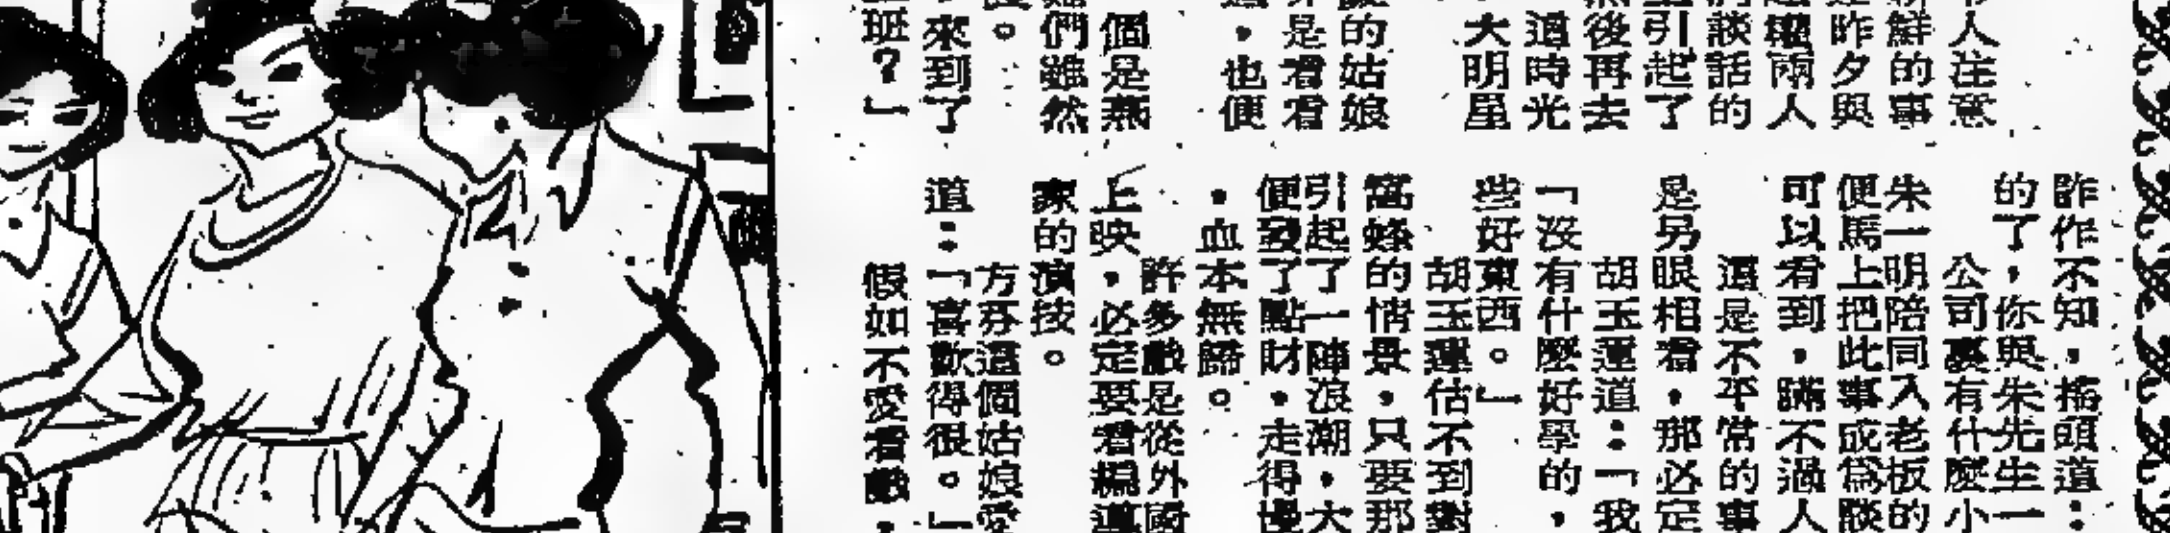 人注意
鮮的事
昨夕與
兩人
談話的
引起了
後再去
道時光
大明星
的姑娘
是看看
，也便
個是燕
們雖然
。
來到了
班？」
昨作不知，搖頭道：
的了，你與朱先生一
公司裏有什麼小
朱一明陪同入老板的
便馬上把此事成為談
可以看到，瞞不過人
還是不平常的事
是另眼相看，那必定
胡玉蓮道：「我
「沒有什麼好學的，
些好東西。」
胡玉蓮估不到對
窩蜂的情景，只要那
引起了一陣浪潮，大
便發了點財，走得慢
，血本無歸。
許多戲是從外國
上映，必定要看編導
家的演技。
方芬這個姑娘愛
道：「喜歡得很。」
假如不愛看戲，